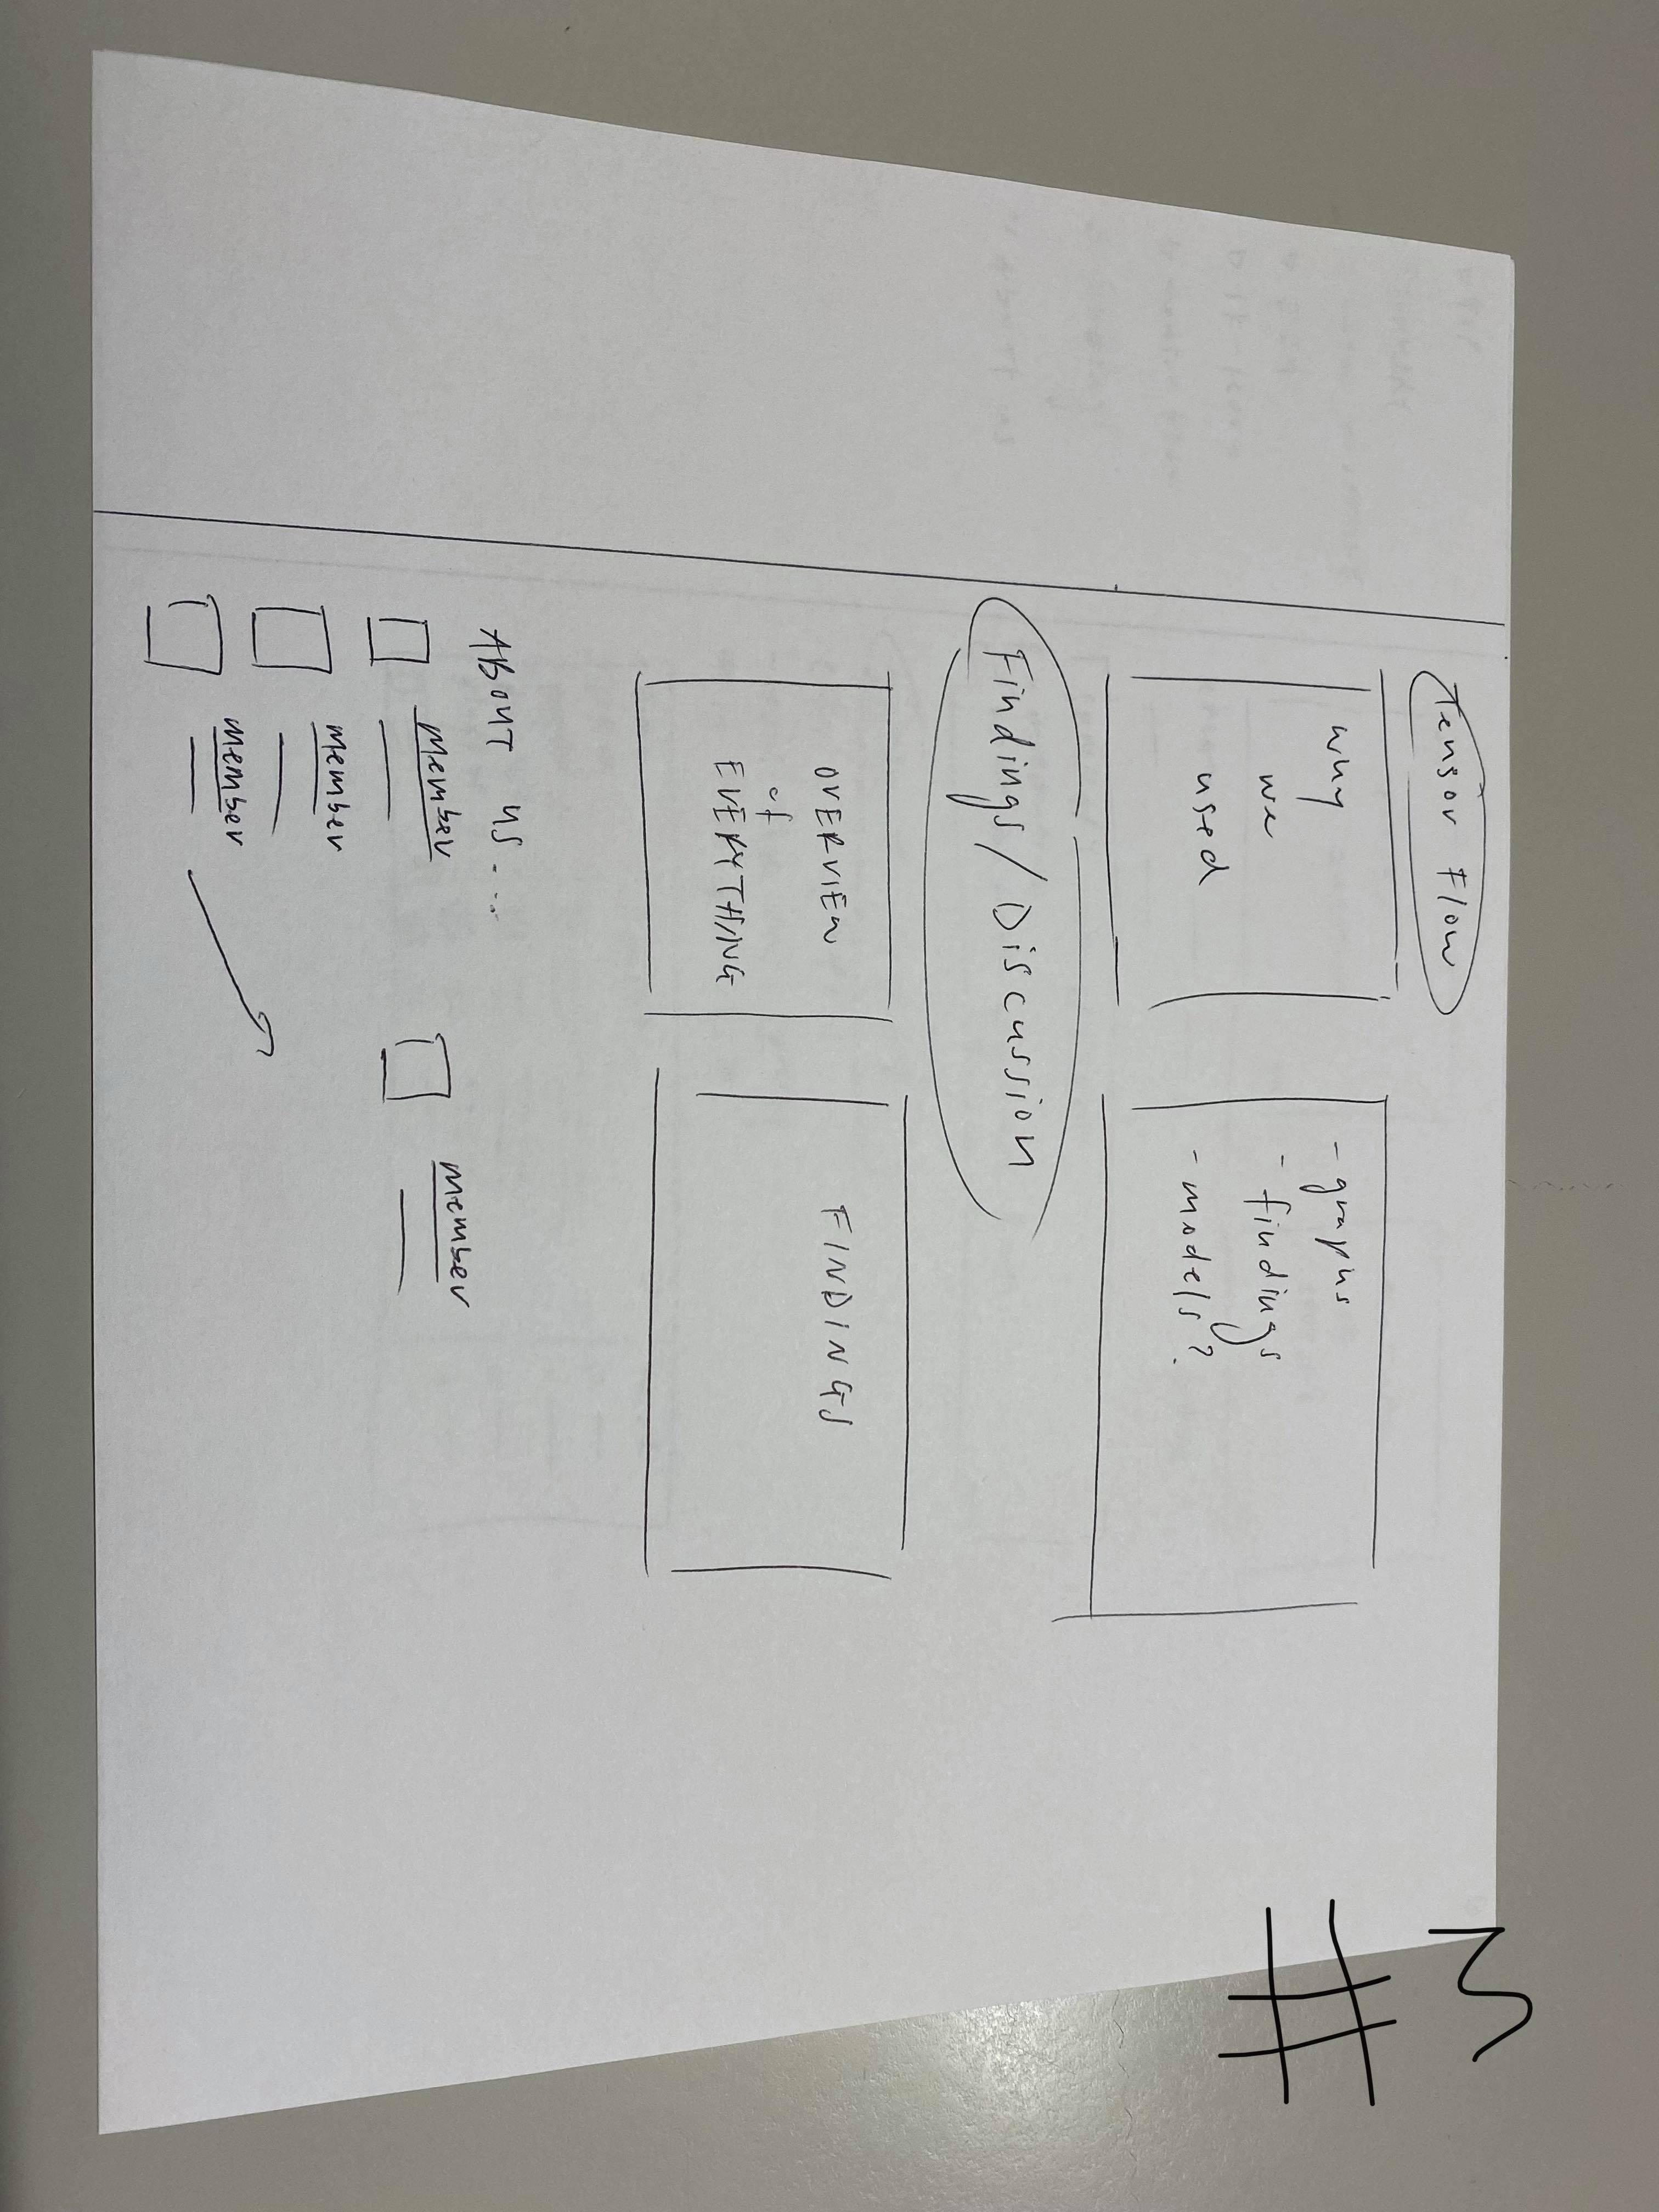 Tensor Flow
why
we
used
- graphs
- findings
- models?
Findings / Discussion
OVERVIEW
of
EVERYTHING
FINDINGS
ABOUT US...
Member
Member
Member
Member
#3